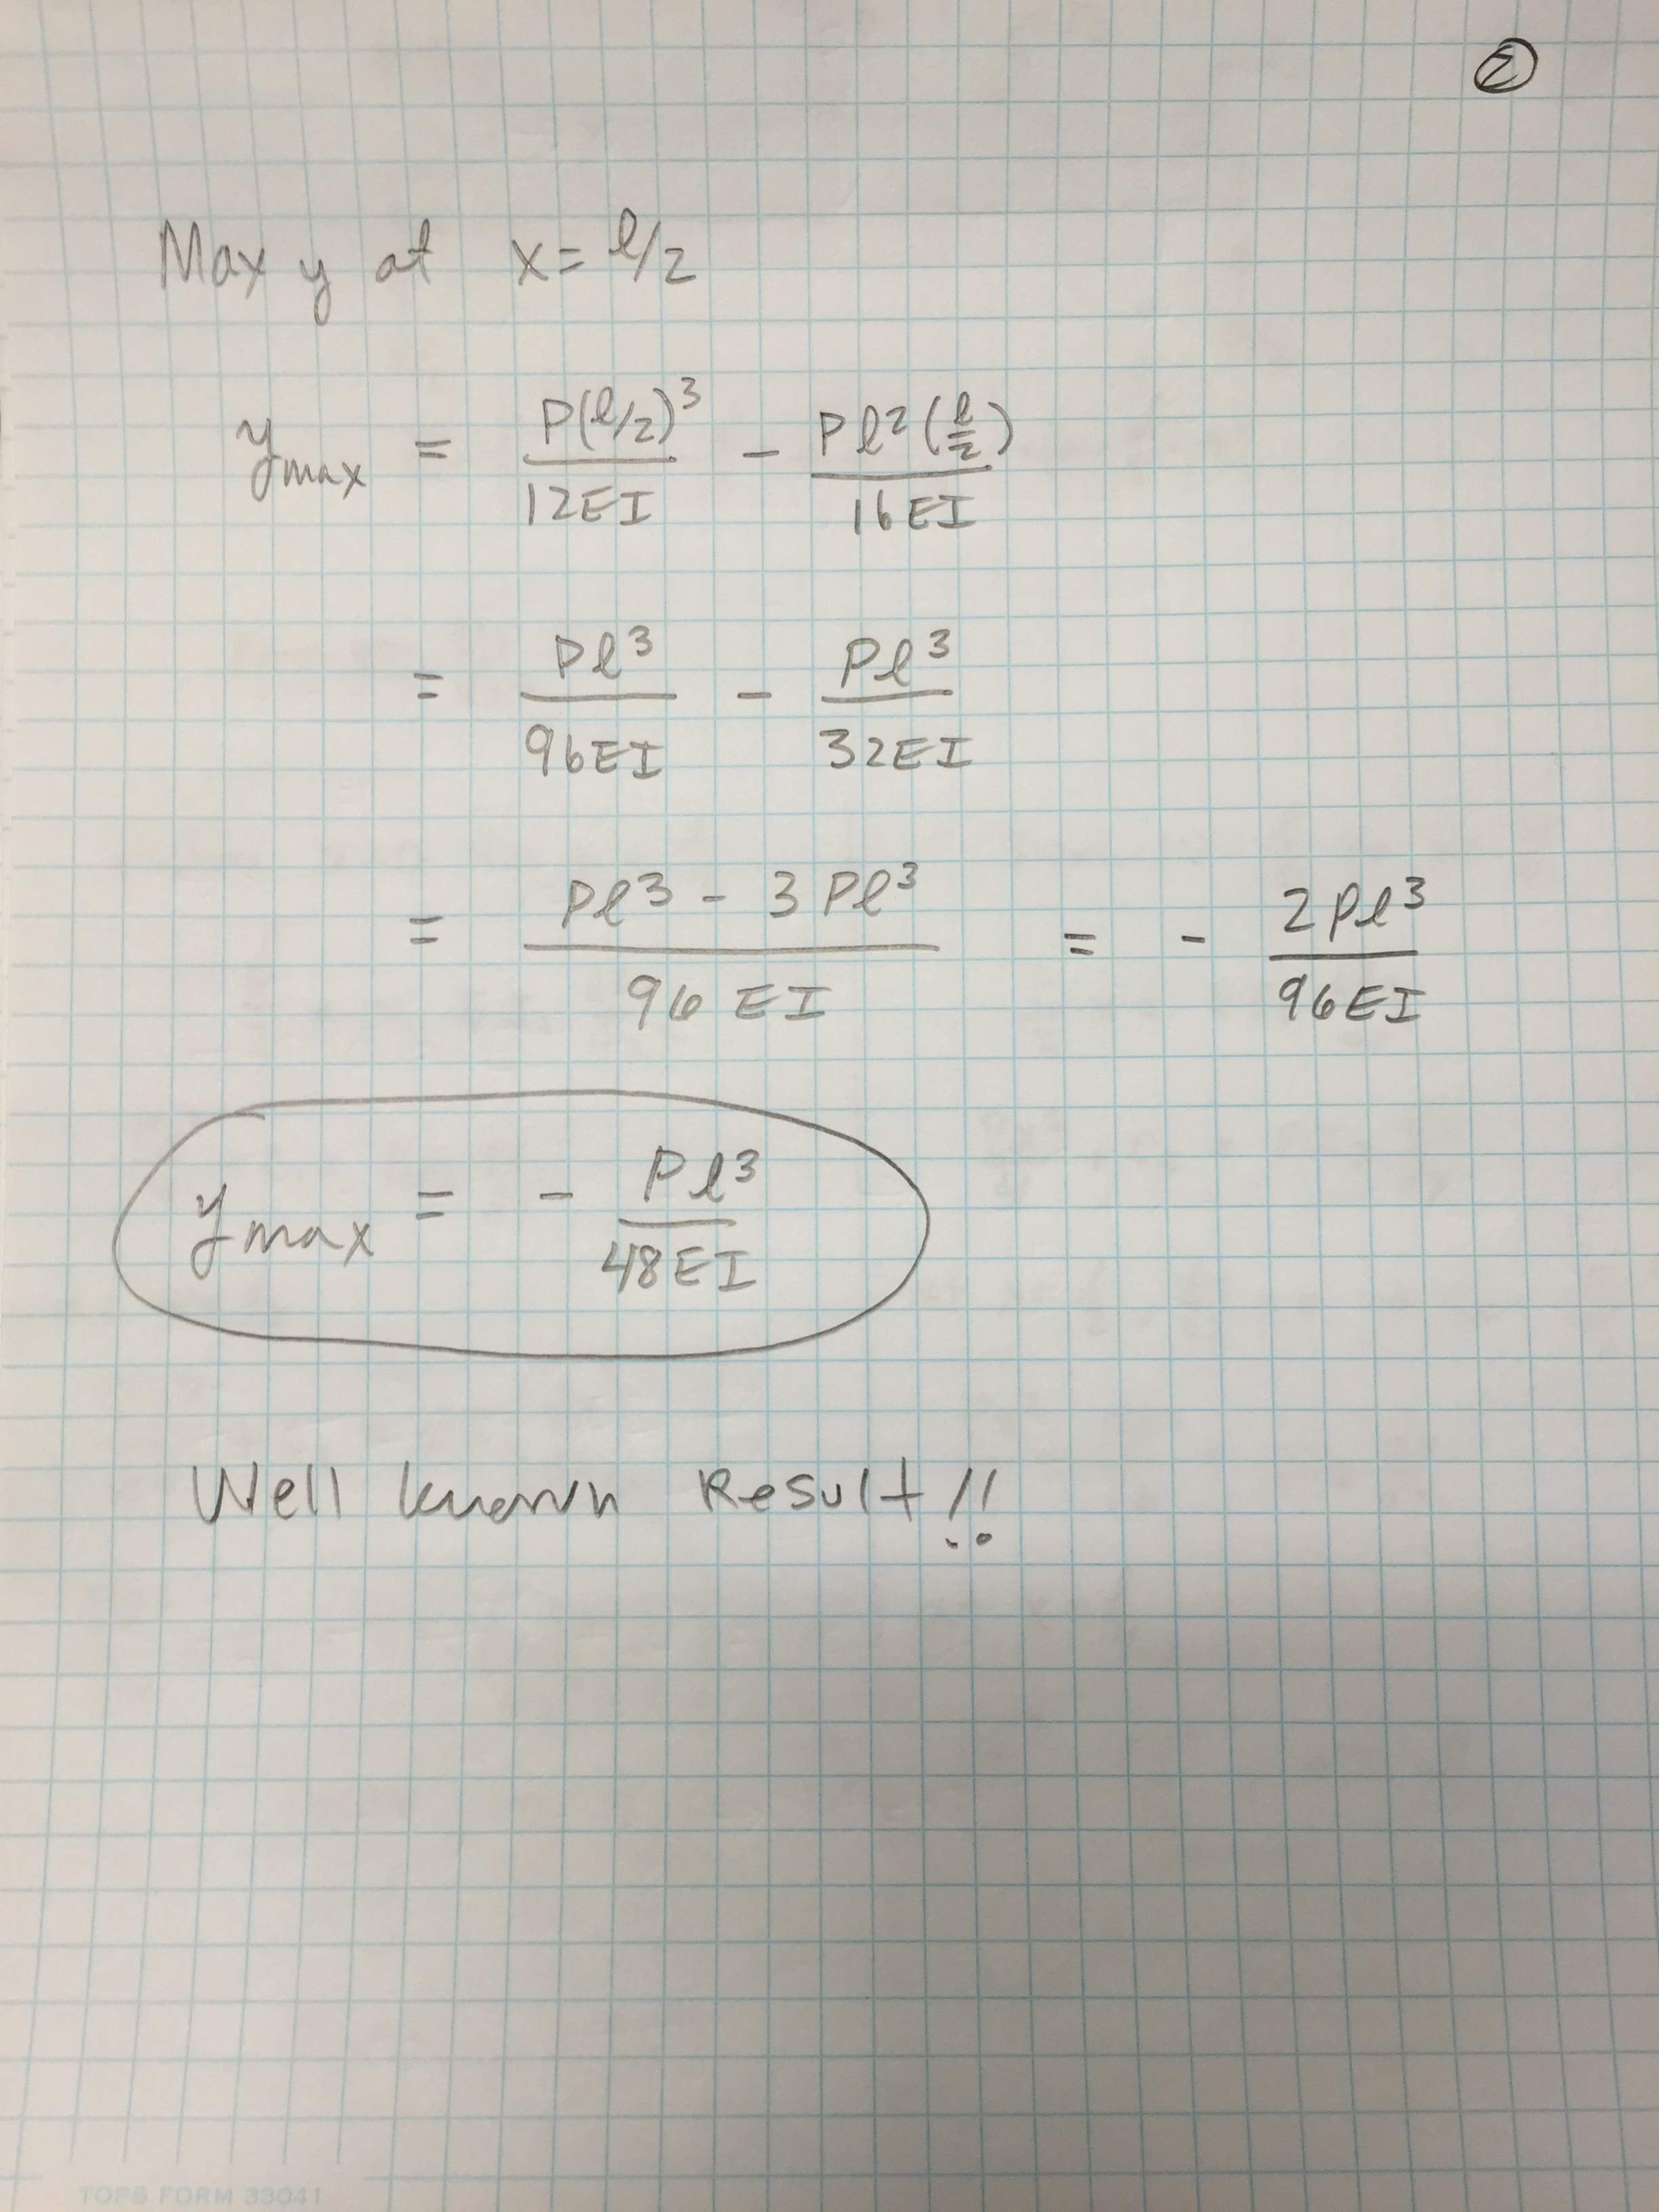 ②
Max y at x = ℓ/2
y_max = P(ℓ/2)^3 / 12EI - Pℓ^2(ℓ/2) / 16EI
= Pℓ^3 / 96EI - Pℓ^3 / 32EI
= (Pℓ^3 - 3Pℓ^3) / 96EI = - 2Pℓ^3 / 96EI
y_max = - Pℓ^3 / 48EI
Well known Result!!
TOPS FORM 33041